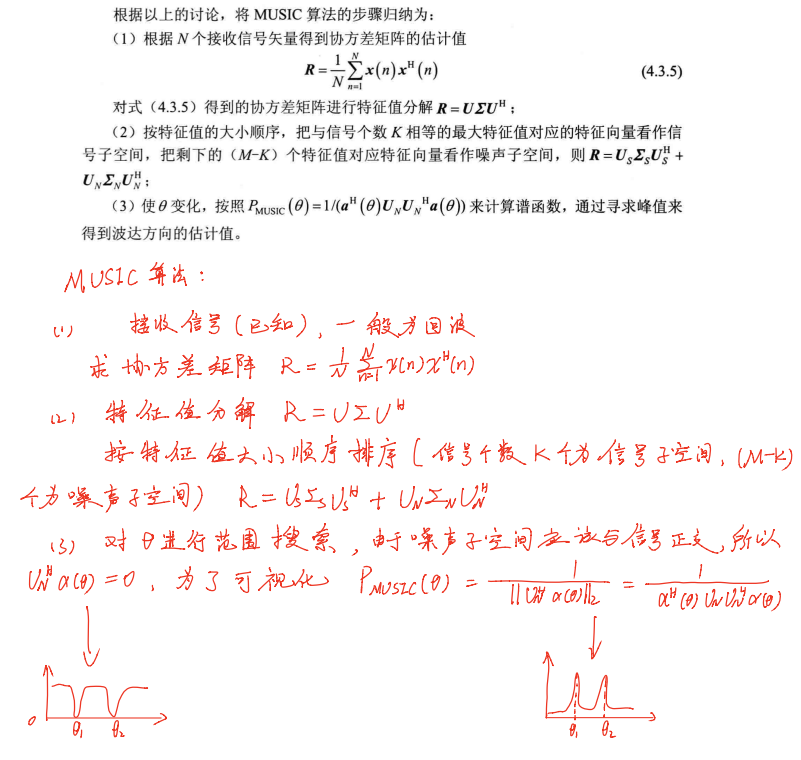 根据以上的讨论，将 MUSIC 算法的步骤归纳为：
（1）根据 N 个接收信号矢量得到协方差矩阵的估计值
R = 1/N ∑_{n=1}^{N} x(n)x^H(n) (4.3.5)
对式（4.3.5）得到的协方差矩阵进行特征值分解 R=UΣU^H；
（2）按特征值的大小顺序，把与信号个数 K 相等的最大特征值对应的特征向量看作信
号子空间，把剩下的（M−K）个特征值对应特征向量看作噪声子空间，则 R=U_SΣ_SU_S^H +
U_NΣ_NU_N^H；
（3）使 θ 变化，按照 P_MUSIC(θ)=1/(a^H(θ)U_NU_N^Ha(θ)) 来计算谱函数，通过寻求峰值来
得到波达方向的估计值。
MUSIC 算法：
(1) 接收信号(已知)，一般为回波
求协方差矩阵 R = 1/N ∑_{n=1}^{N} x(n)x^H(n)
(2) 特征值分解 R=UΣU^H
按特征值大小顺序排序(信号个数 K 个为信号子空间，(M-K)
个为噪声子空间) R = U_SΣ_SU_S^H + U_NΣ_NU_N^H
(3) 对 θ 进行范围搜索，由于噪声子空间应该与信号正交，所以
U_N^H α(θ) = 0，为了可视化 P_MUSIC(θ) = 1/||U_N^H α(θ)||_2 = 1/α^H(θ) U_N U_N^H α(θ)
0 θ_1 θ_2
θ_1 θ_2